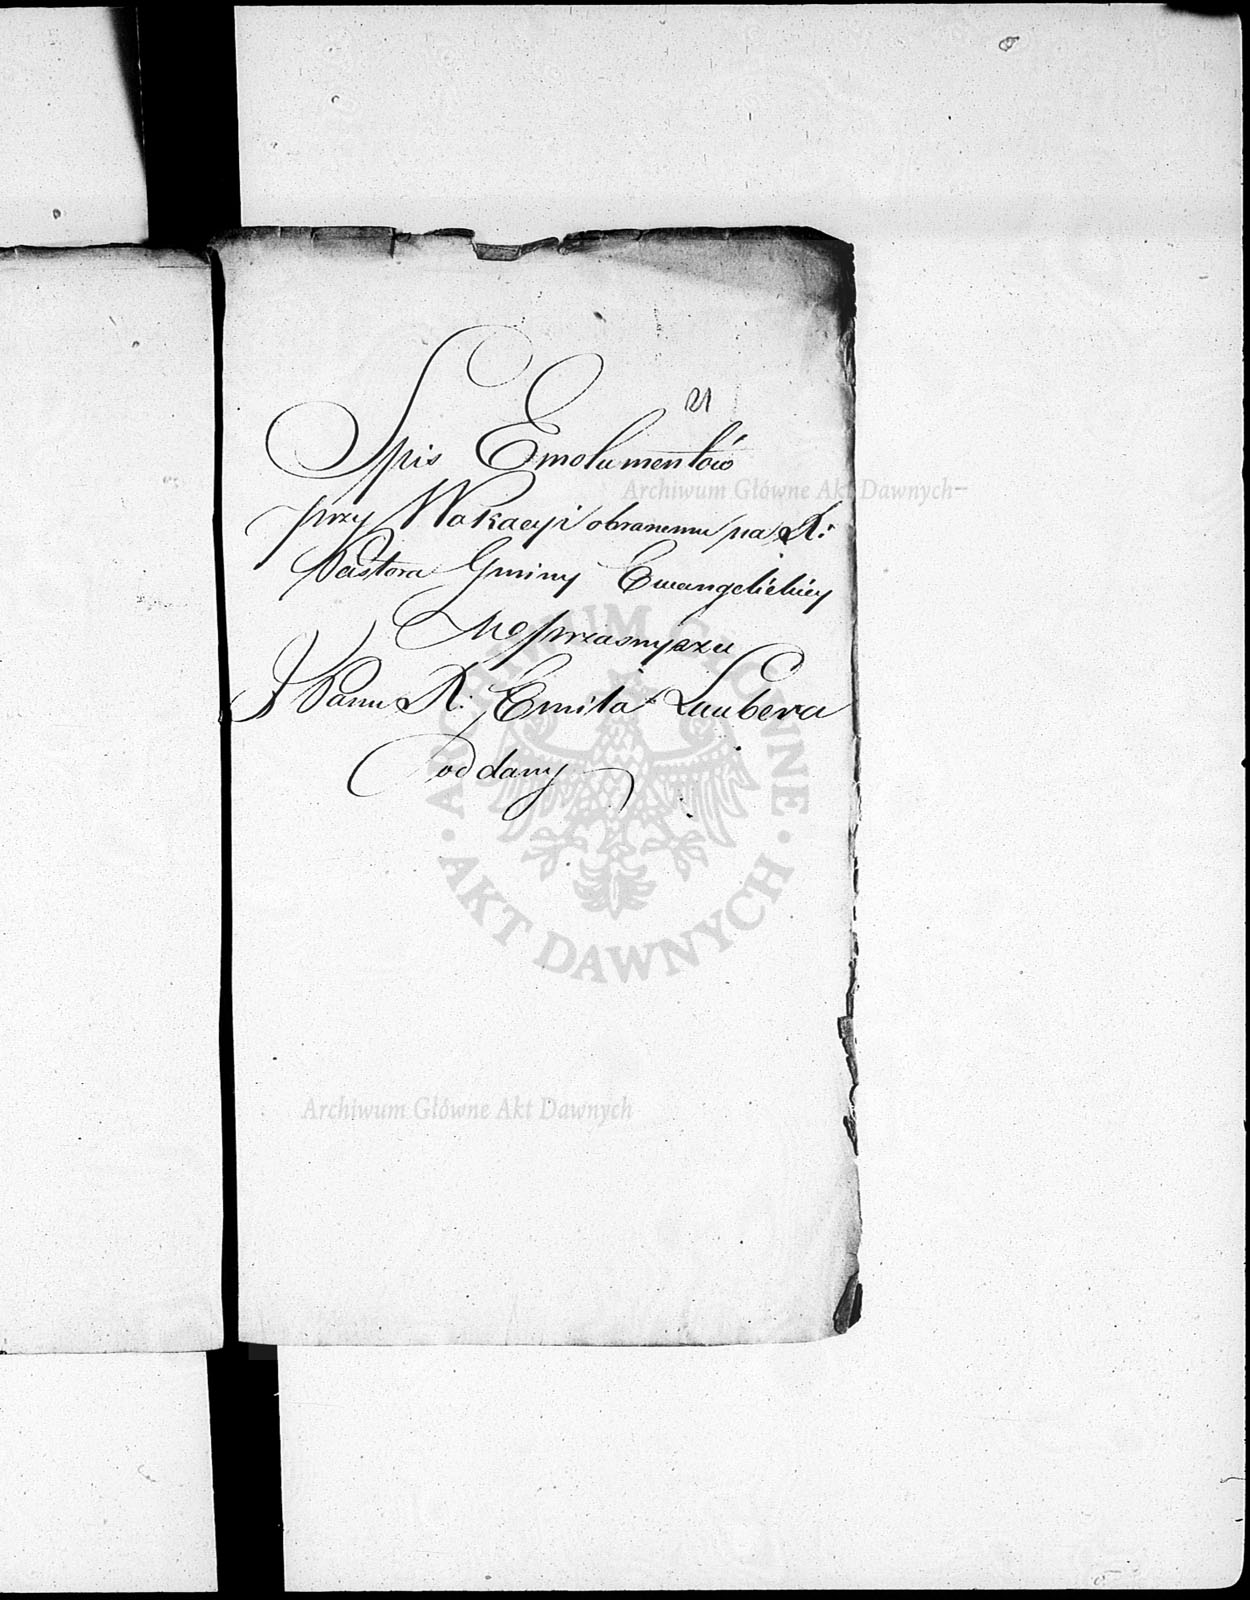 21
Spis Emolumentów
przy Wokacyi obranemu na X:
Pastora Gminy Ewangelickiey
W Przasnyszu
J Panu X: Emila Laubera
oddany
Archiwum Główne Akt Dawnych
ARCHIWUM GŁÓWNE
AKT DAWNYCH
Archiwum Główne Akt Dawnych